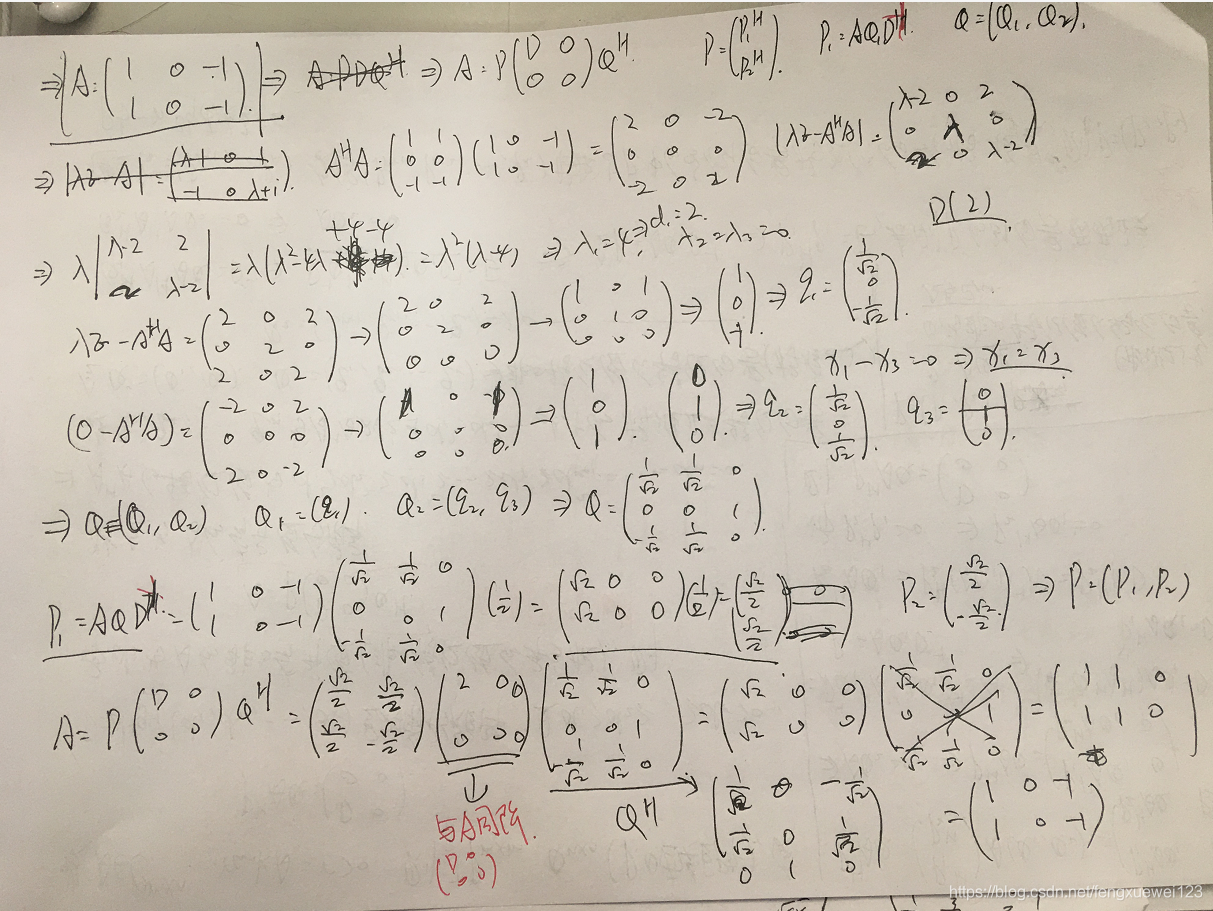 ⇒ A = (1 0 -1; 1 0 -1) ⇒ A=PDQ^H ⇒ A = P(D 0; 0 0)Q^H. P=(P₁^H; P₂^H). P₁=AQ₁D^H. Q=(Q₁, Q₂).
⇒ |λI-A| = (λ-1 0 1; -1 0 λ+1). A^H A = (1 1; 0 0; -1 -1)(1 0 -1; 1 0 -1) = (2 0 -2; 0 0 0; -2 0 2) |λI-A^H A| = (λ-2 0 2; 0 λ 0; 2 0 λ-2)
D(2)
⇒ λ|λ-2 2; 2 λ-2| = λ(λ²-4λ +4-4) = λ²(λ-4) ⇒ λ₁=4 ⇒ d₁=2. λ₂=λ₃=0.
λI-A^H A = (2 0 2; 0 2 0; 2 0 2) → (2 0 2; 0 2 0; 0 0 0) → (1 0 1; 0 1 0; 0 0 0) ⇒ (1; 0; -1). ⇒ q₁ = (1/√2; 0; -1/√2).
x₁-x₃=0 ⇒ x₁=x₃
(0-A^H A) = (-2 0 2; 0 0 0; 2 0 -2) → (1 0 -1; 0 0 0; 0 0 0) ⇒ (1; 0; 1). (0; 1; 0) ⇒ q₂ = (1/√2; 0; 1/√2). q₃ = (0; 1; 0).
⇒ Q=(Q₁, Q₂) Q₁=(q₁). Q₂=(q₂, q₃) ⇒ Q = (1/√2 1/√2 0; 0 0 1; -1/√2 1/√2 0).
P₁=AQD^H = (1 0 -1; 1 0 -1)(1/√2 1/√2 0; 0 0 1; -1/√2 1/√2 0)(1/2) = (√2 0 0; √2 0 0)(1/2) = (√2/2; √2/2) P₂ = (√2/2; -√2/2) ⇒ P=(P₁, P₂)
A = P(D 0; 0 0)Q^H = (√2/2 √2/2; √2/2 -√2/2)(2 0 0; 0 0 0)(1/√2 1/√2 0; 0 0 1; -1/√2 1/√2 0) = (√2 0 0; √2 0 0)(1/√2 1/√2 0; 0 0 1; -1/√2 1/√2 0) = (1 1 0; 1 1 0)
与A同阶.
(D 0; 0 0)
Q^H (1/√2 0 -1/√2; 1/√2 0 1/√2; 0 1 0) = (1 0 -1; 1 0 -1)
https://blog.csdn.net/fengxuewei123